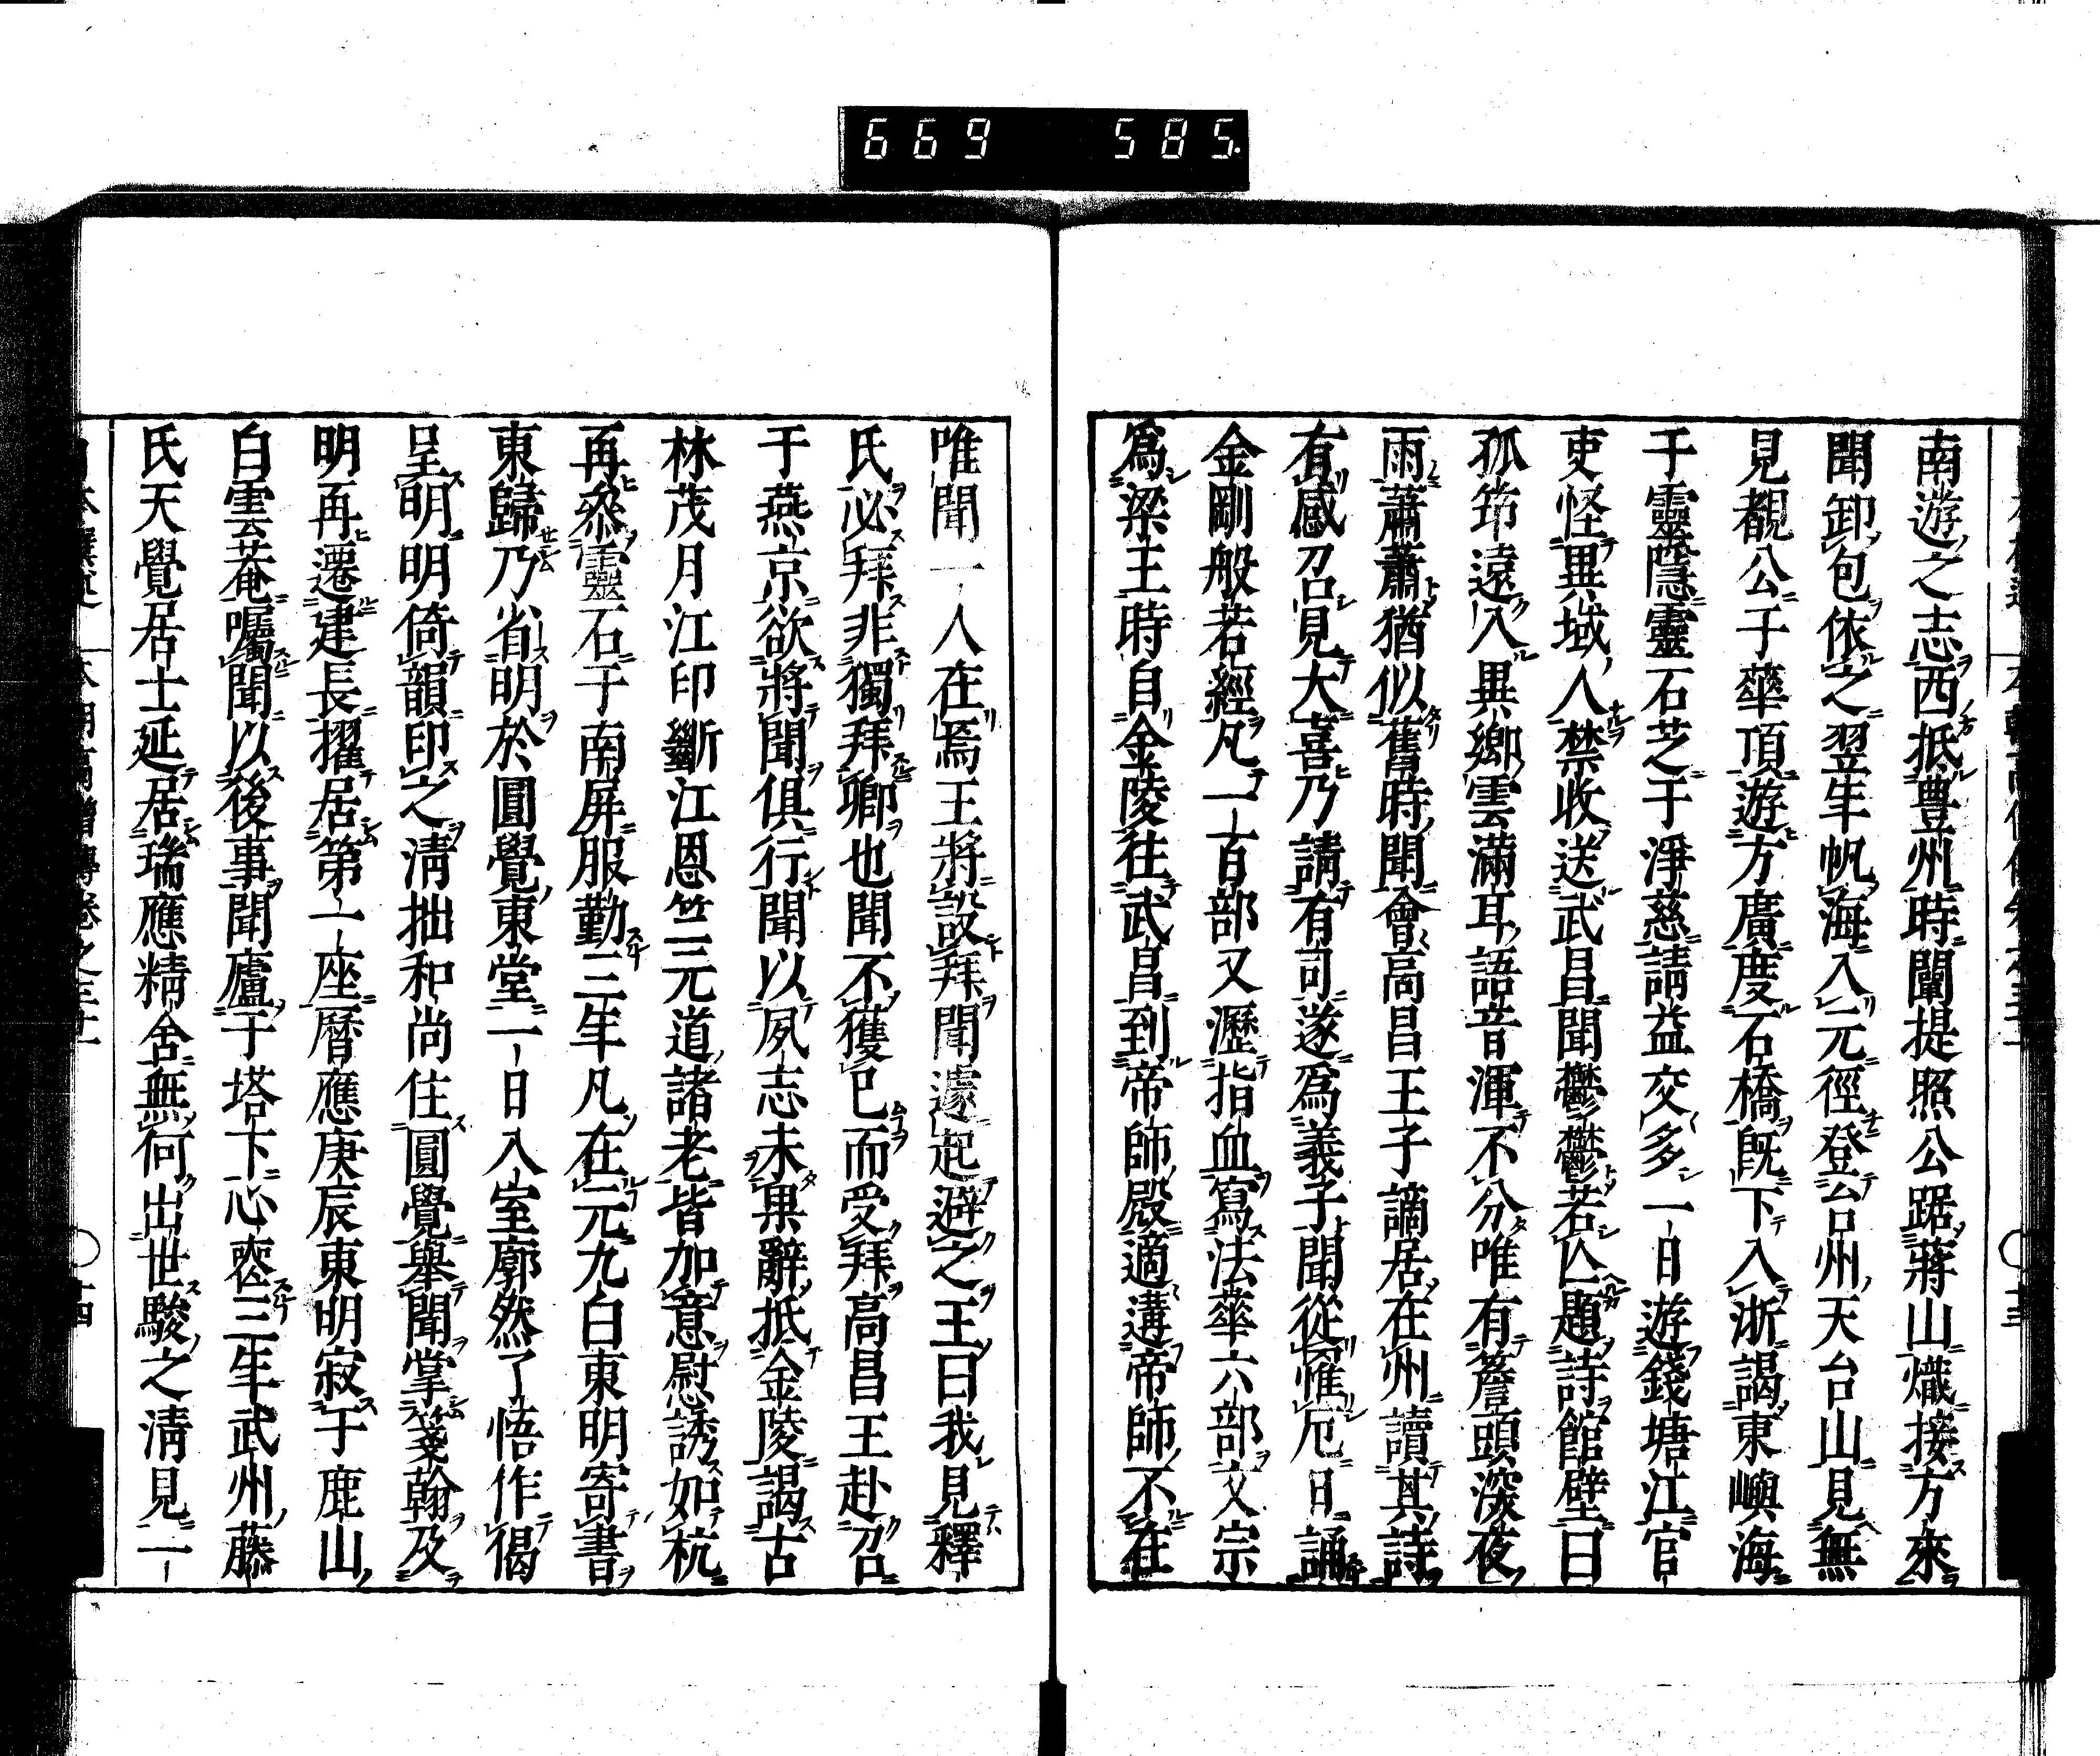 669 585
南遊之志西抵豊州時闡提照公踞蔣山熾接方來
聞卸包依之翌年帆海入元徑登台州天台山見無
見覩公于華頂遊方廣度石橋既下入浙謁東嶼海
于靈隱靈石芝于淨慈請益交多一日遊錢塘江官
吏怪異域人禁收送武昌聞鬱鬱若亾題詩館壁曰
孤笻遠入異郷雲滿耳語音渾不分唯有簷頭深夜
雨蕭蕭猶似舊時聞會高昌王子謫居在州讀其詩
有感召見大喜乃請有司遂爲義子聞從罹厄日誦
金剛般若經凡一百部又瀝指血寫法華六部文宗
爲梁王時自金陵往武昌到帝師殿適遘帝師不在
唯聞一人在焉王將設拜聞遽起避之王曰我見釋
氏必拜非獨拜卿也聞不獲已而受拜高昌王赴召
于燕京欲將聞俱行聞以夙志未果辭抵金陵謁古
林茂月江印斷江恩竺元道諸老皆加意慰誘如杭
再參靈石于南屏服勤三年凡在元九白東明寄書
東歸乃省明於圓覺東堂一日入室廓然了悟作偈
呈明明倚韻印之淸拙和尚住圓覺舉聞掌箋翰及
明再遷建長擢居第一座曆應庚辰東明寂于鹿山
白雲菴囑聞以後事聞廬于塔下心喪三年武州藤
氏天覺居士延居瑞應精舍無何出世駿之淸見一